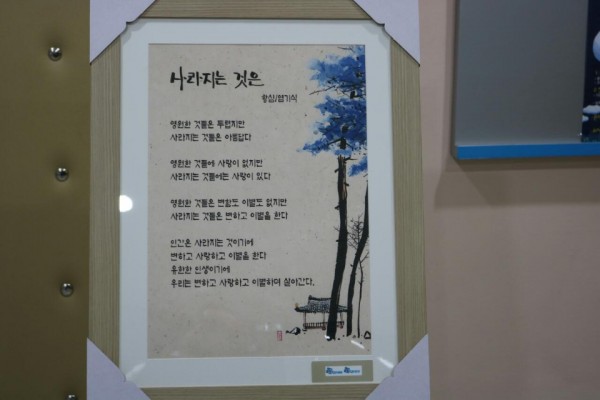 사라지는 것은
영원한 것들은 두렵지만
사라지는 것들은 아름답다
영원한 것들에 사랑이 없지만
사라지는 것들에는 사랑이 있다
영원한 것들은 변함도 이별도 없지만
사라지는 것들은 변하고 이별을 한다
인간은 사라지는 것이기에
변하고 사랑하고 이별을 한다
유한한 인생이기에
우리는 변하고 사랑하고 이별하며 살아간다.